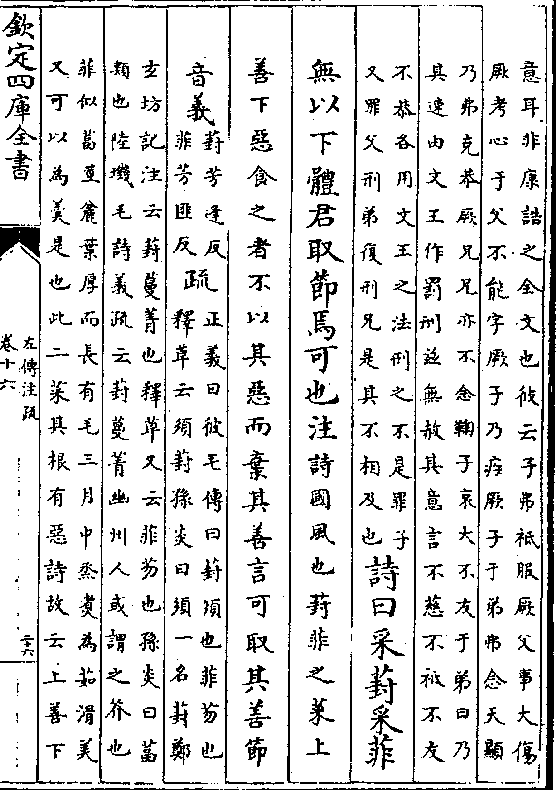 意耳非康誥之全文也彼云子弗祗服厥父事大傷
厥考心于父不能字厥子乃疾厥子于弟弗念天顯
乃弗克恭厥兄兄亦不念鞠子哀大不友于弟曰乃
其速由文王作罰刑茲無赦其意言不慈不祗不友
不恭各用文王之法刑之不是罪子
又罪父刑弟復刑兄是其不相及也
詩曰采葑采菲
無以下體君取節焉可也注詩國風也葑菲之菜上
善下惡食之者不以其惡而棄其善言可取其善節
音義
葑芳逢反
菲芳匪反
疏
正義曰彼毛傳曰葑須也菲芴也
釋草云須葑孫炎曰須一名葑鄭
玄坊記注云葑蔓菁也釋草又云菲芴也孫炎曰葍
類也陸璣毛詩義疏云葑蔓菁幽州人或謂之芥也
菲似葍莖麄葉厚而長有毛三月中烝煑為茹滑美
又可以為羹是也此二菜其根有惡詩故云上善下
欽定四庫全書
左傳注疏
卷十六
二十六